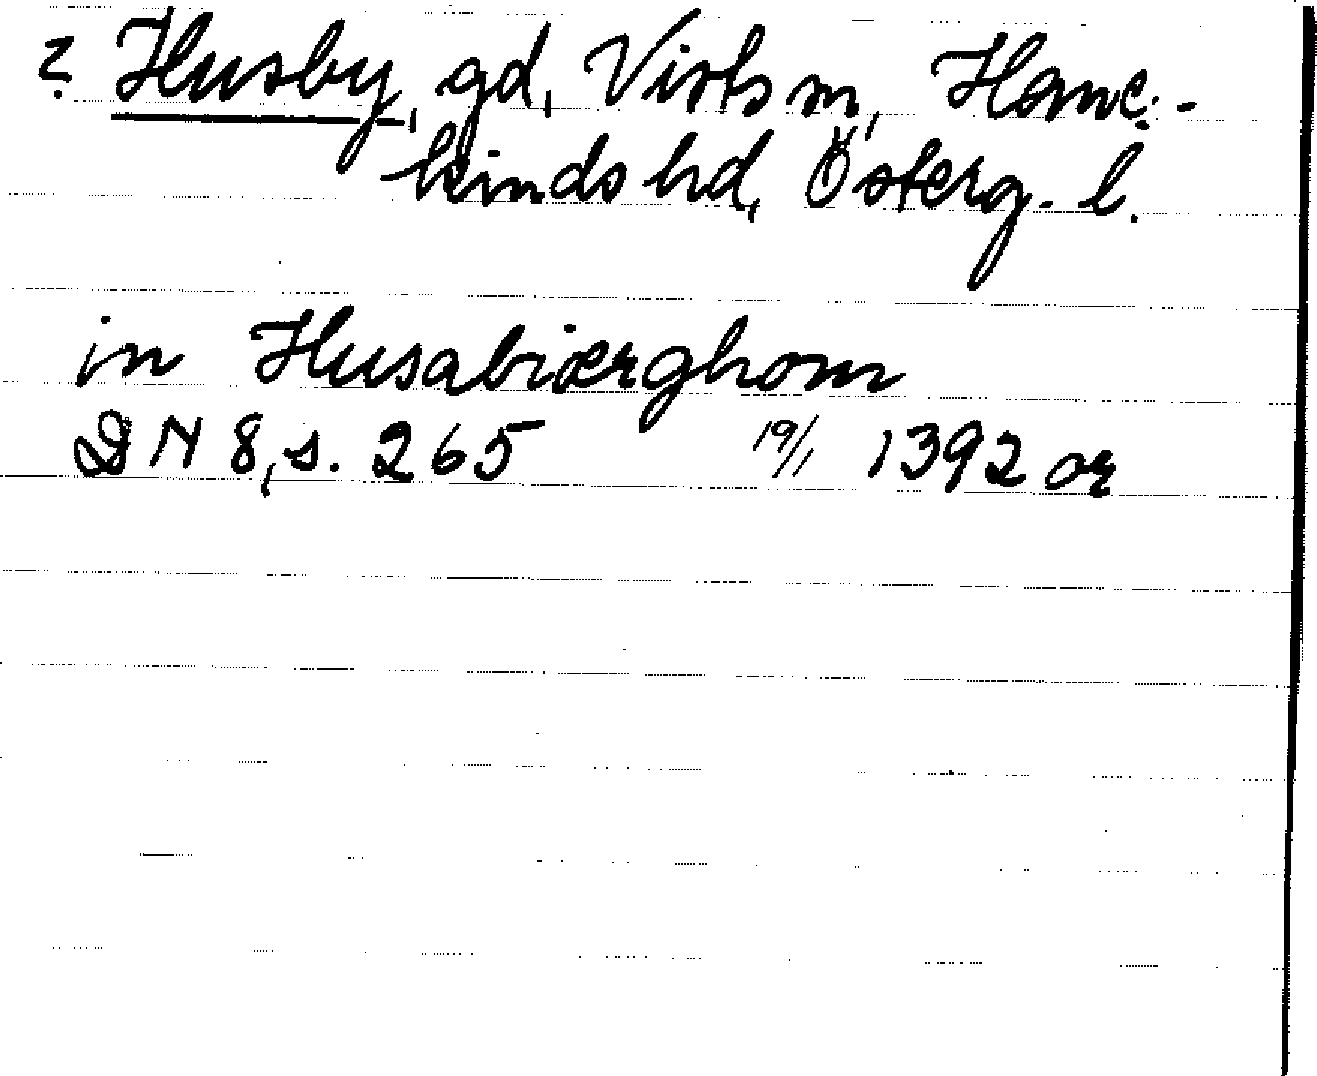 ? Husby, gd, Vists sn, Hane-
kinds hd, Österg. l.
in Husabiærghom
DN 8, s. 265 19/1 1392 or